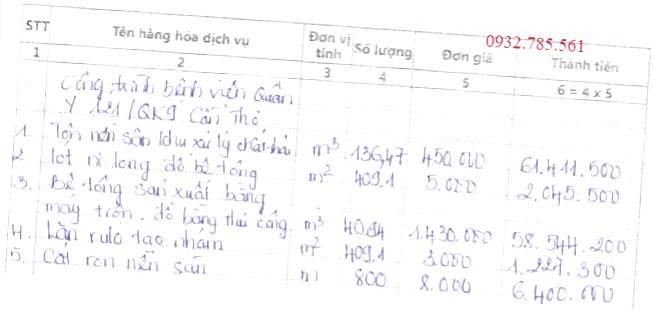 0932.785.561
STT Tên hàng hóa dịch vụ Đơn vị tính Số lượng Đơn giá Thành tiền
1 2 3 4 5 6 = 4 x 5
Công trình bệnh viện Quân
Y 121/QK9 Cần Thơ
1. Tôn nền sân khu xử lý chất thải m³ 136,47 450.000 61.411.500
2 lót ni long đổ bê tông m² 409.1 5.000 2.045.500
3. Bê tông sản xuất bằng
máy trộn. đổ bằng thủ công m³ 40,94 1.430.000 58.544.200
4. Lăn rulo tạo nhám m² 409,1 3.000 1.227.300
5. Cắt ron nền sân m 800 8.000 6.400.000